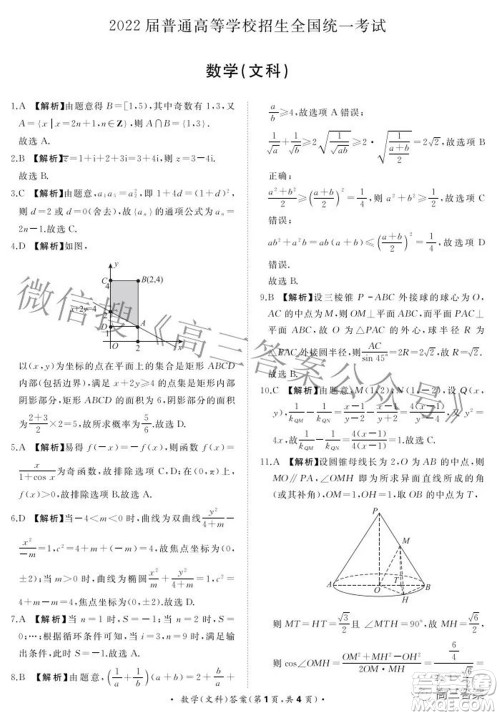 2022 届普通高等学校招生全国统一考试
数学(文科)
1.A 【解析】由题意得 B=[1,5),其中奇数有 1,3,又
A={x|x=2n+1,n∈Z},则 A∩B={1,3}.
故选 A.
2.B 【解析】z̅=1+i+2+3i=3+4i,则 z=3-4i.
故选 B.
3.C
4.D 【解析】如图,
y
C
B(2,4)
x+2y=4
A
D
x
以以(x,y)为坐标的点在平面上的集合是矩形 ABCD
内部(包括边界),满足 x+2y≥4 的是矩形 ABCD 内部
阴影部分,矩形 ABCD 的面积为 2×3=6,阴影部分为
(2+3)/2×2=5,故所求概率为 5/6.
故选 D.
5.A 【解析】易得 f(-x)=-f(x),故 f(x)=
x/(1+cos x)为奇函数,故排除选项 C,D;在(0,π)上,
f(x)>0,故排除选项 B.
故选 A.
6.D 【解析】当-4<m<0 时,曲线为双曲线 y²/(4+m)-
=1,c²=4+m-m=4,故焦点坐标不变;
当 m>0 时,曲线为椭圆 +y²/(4+m)=1,c²=4+m-m
=4,故焦点坐标不变.
故选 D.
7.A 【解析】当 n=1 时,S=1;当 n=2 时,S=
0;…;根据循环条件可知,当 n=7 时,S=1.
故选 A.
8.B 【解析】由题意,(1/a+1/b)(a+b)=2+b/a+
a/b≥4,故选项 A 错误;
1/√a+1/√b≥2√(1/√(ab))≥2·√(1/((a+b)/2))=2√2,故选项 B
正确;
(a²+b²)/2≥((a+b)/2)²=1/4,则 a²+b²≥1/2,故选项 C
错误;
ab²+a²b=ab(a+b)=ab≤((a+b)/2)²=1/4,故选项 D
错误.
故选 B.
9.B 【解析】设三棱锥 P-ABC 外接球的球心为 O,
AC 的中点为 M,则 OM⊥平面 ABC,而平面 PAC⊥
平面 ABC,故 O 为△PAC 的外心,球半径 R 为
△PAC 外接圆的半径,AC/sin 45°=2R,故 R=
故选 B.
10.C 【解析】由题意得 M(1,2),N(2,-2),设 Q(x,
y),1/k_QM-1/k_QN=(x-1)/(y-2)-(x-2)/(y+2)=4(x-1)/(y²-4),又 y²=
4x,故 1/k_QM-1/k_QN=4(x-1)/4(x-1)=1.
故选 C.
11.A 【解析】设圆锥母线长为 2,O 为 AB 的中点,则
MO∥PA,∠OMH 即为异面直线所成的角
(或其补角),OM=1,OH=1,取 OB 的中点 T,
P
M
A
O
T
B
H
则 MT=√3/2,HT=√3/2,且 MT⊥HT,MH=√6/2,
则 cos∠OMH=(OM²+MH²-OH²)/(2OM·MH)=(6/4)/√6=√6/4.
数学(文科)答案(第 1 页,共 4 页)
微信搜《高三答案公众号》
高三答案